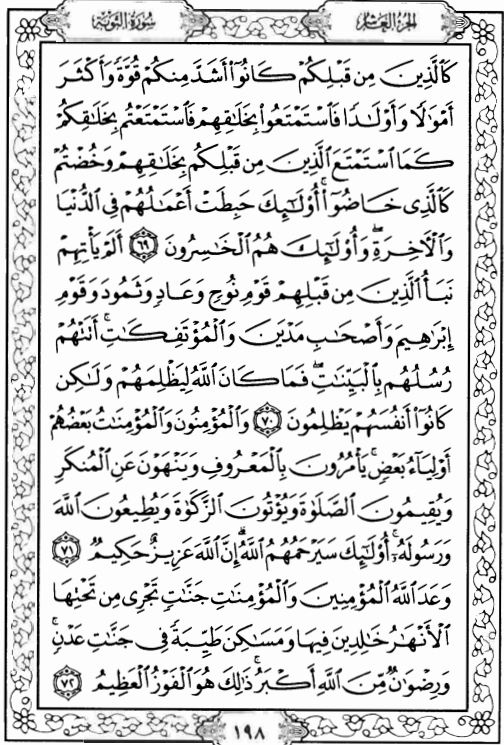 الجزء العاشر
سورة التوبة
كَٱلَّذِينَ مِن قَبْلِكُمْ كَانُوٓا۟ أَشَدَّ مِنكُمْ قُوَّةً وَأَكْثَرَ
أَمْوَٰلًا وَأَوْلَٰدًا فَٱسْتَمْتَعُوا۟ بِخَلَٰقِهِمْ فَٱسْتَمْتَعْتُم بِخَلَٰقِكُمْ
كَمَا ٱسْتَمْتَعَ ٱلَّذِينَ مِن قَبْلِكُم بِخَلَٰقِهِمْ وَخُضْتُمْ
كَٱلَّذِى خَاضُوٓا۟ أُو۟لَٰٓئِكَ حَبِطَتْ أَعْمَٰلُهُمْ فِى ٱلدُّنْيَا
وَٱلْءَاخِرَةِ ۖ وَأُو۟لَٰٓئِكَ هُمُ ٱلْخَٰسِرُونَ ٦٩ أَلَمْ يَأْتِهِمْ
نَبَأُ ٱلَّذِينَ مِن قَبْلِهِمْ قَوْمِ نُوحٍ وَعَادٍ وَثَمُودَ وَقَوْمِ
إِبْرَٰهِيمَ وَأَصْحَٰبِ مَدْيَنَ وَٱلْمُؤْتَفِكَٰتِ ۚ أَتَتْهُمْ
رُسُلُهُم بِٱلْبَيِّنَٰتِ ۖ فَمَا كَانَ ٱللَّهُ لِيَظْلِمَهُمْ وَلَٰكِن
كَانُوٓا۟ أَنفُسَهُمْ يَظْلِمُونَ ٧٠ وَٱلْمُؤْمِنُونَ وَٱلْمُؤْمِنَٰتُ بَعْضُهُمْ
أَوْلِيَآءُ بَعْضٍ ۚ يَأْمُرُونَ بِٱلْمَعْرُوفِ وَيَنْهَوْنَ عَنِ ٱلْمُنكَرِ
وَيُقِيمُونَ ٱلصَّلَوٰةَ وَيُؤْتُونَ ٱلزَّكَوٰةَ وَيُطِيعُونَ ٱللَّهَ
وَرَسُولَهُۥٓ ۚ أُو۟لَٰٓئِكَ سَيَرْحَمُهُمُ ٱللَّهُ ۗ إِنَّ ٱللَّهَ عَزِيزٌ حَكِيمٌ ٧١
وَعَدَ ٱللَّهُ ٱلْمُؤْمِنِينَ وَٱلْمُؤْمِنَٰتِ جَنَّٰتٍ تَجْرِى مِن تَحْتِهَا
ٱلْأَنْهَٰرُ خَٰلِدِينَ فِيهَا وَمَسَٰكِنَ طَيِّبَةً فِى جَنَّٰتِ عَدْنٍ ۚ
وَرِضْوَٰنٌ مِّنَ ٱللَّهِ أَكْبَرُ ۚ ذَٰلِكَ هُوَ ٱلْفَوْزُ ٱلْعَظِيمُ ٧٢
١٩٨